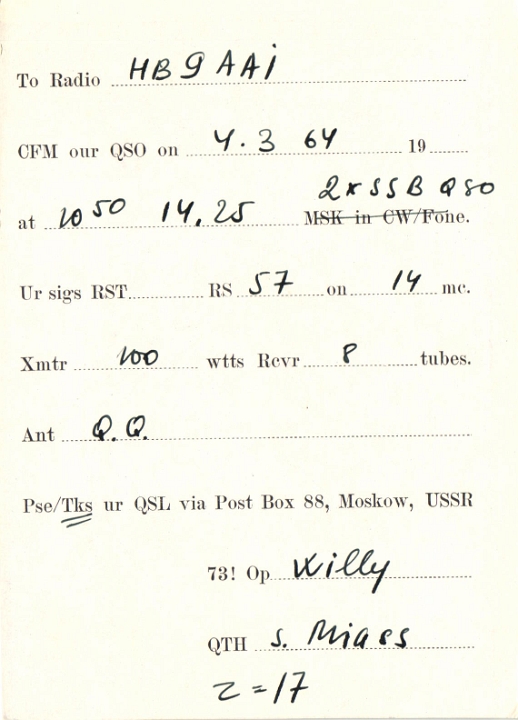 To Radio HB9AAi
CFM our QSO on 4.3 64 19
2x SSB QSO
at 10 50 14.25 MSK in CW/Fone.
Ur sigs RST RS 57 on 14 mc.
Xmtr 100 wtts Rcvr 8 tubes.
Ant Q.Q.
Pse/Tks ur QSL via Post Box 88, Moskow, USSR
73! Op Willy
QTH s. Miass
Z=17